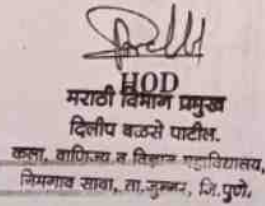 HOD
मराठी विभाग प्रमुख
दिलीप वळसे पाटील.
कला, वाणिज्य व विज्ञान महाविद्यालय,
निमगाव सावा, ता.जुन्नर, जि.पुणे.